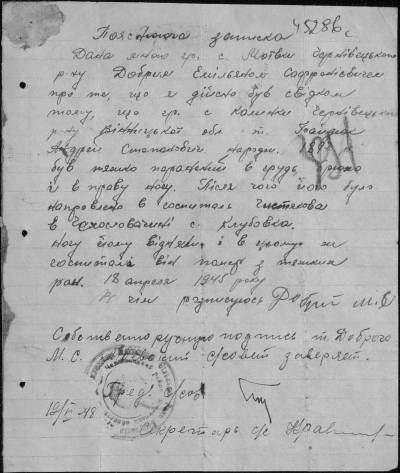 45286с
Пояснююча записка
Дана мною гр. с. Мотвки Чернівецького
р-ну Добрим Ємільяном Софроновичем
про те, що я дійсно був свідком
тому, що гр. с. Калинки Чернівецького
р-ну Вінницької обл. т.
Андрей Степанович народж.
був тяжко поранений в грудь, 
і в праву ногу. Після чого його було
направлено в госпиталь Чистякова
в Чехословаччині с. Клубовка.
ногу йому відняли і в цьому же
госпиталі він помер з тяжких
ран. 18 апреля 1945 року
В чім розписуюсь
Собственноручную подпись т. Доброго
М. С. с/совет заверяет.
Пред. с/сов
12/VI 48
Секретарь с/с